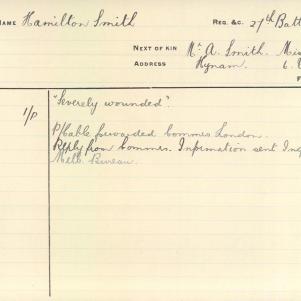 NAME Hamilton Smith REG. &C. 27th Batt
NEXT OF KIN Mr A. Smith. Mis
ADDRESS Kynam.
1/P "Severely wounded".
P/Cable forwarded Commrs London.
Reply from Commrs. Information sent Inq
Melb. Bureau.